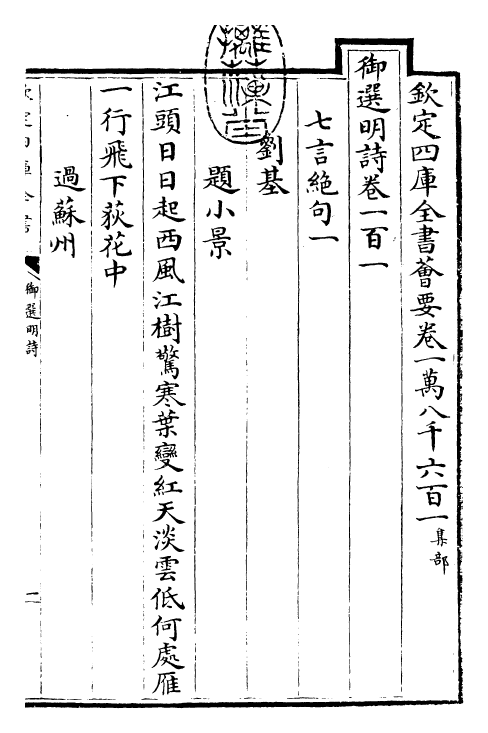 欽定四庫全書薈要卷一萬八千六百一集部
御選明詩卷一百一
七言絶句一
劉基
題小景
江頭日日起西風江樹驚寒葉變紅天淡雲低何處雁
一行飛下荻花中
過蘇州
御選明詩
一